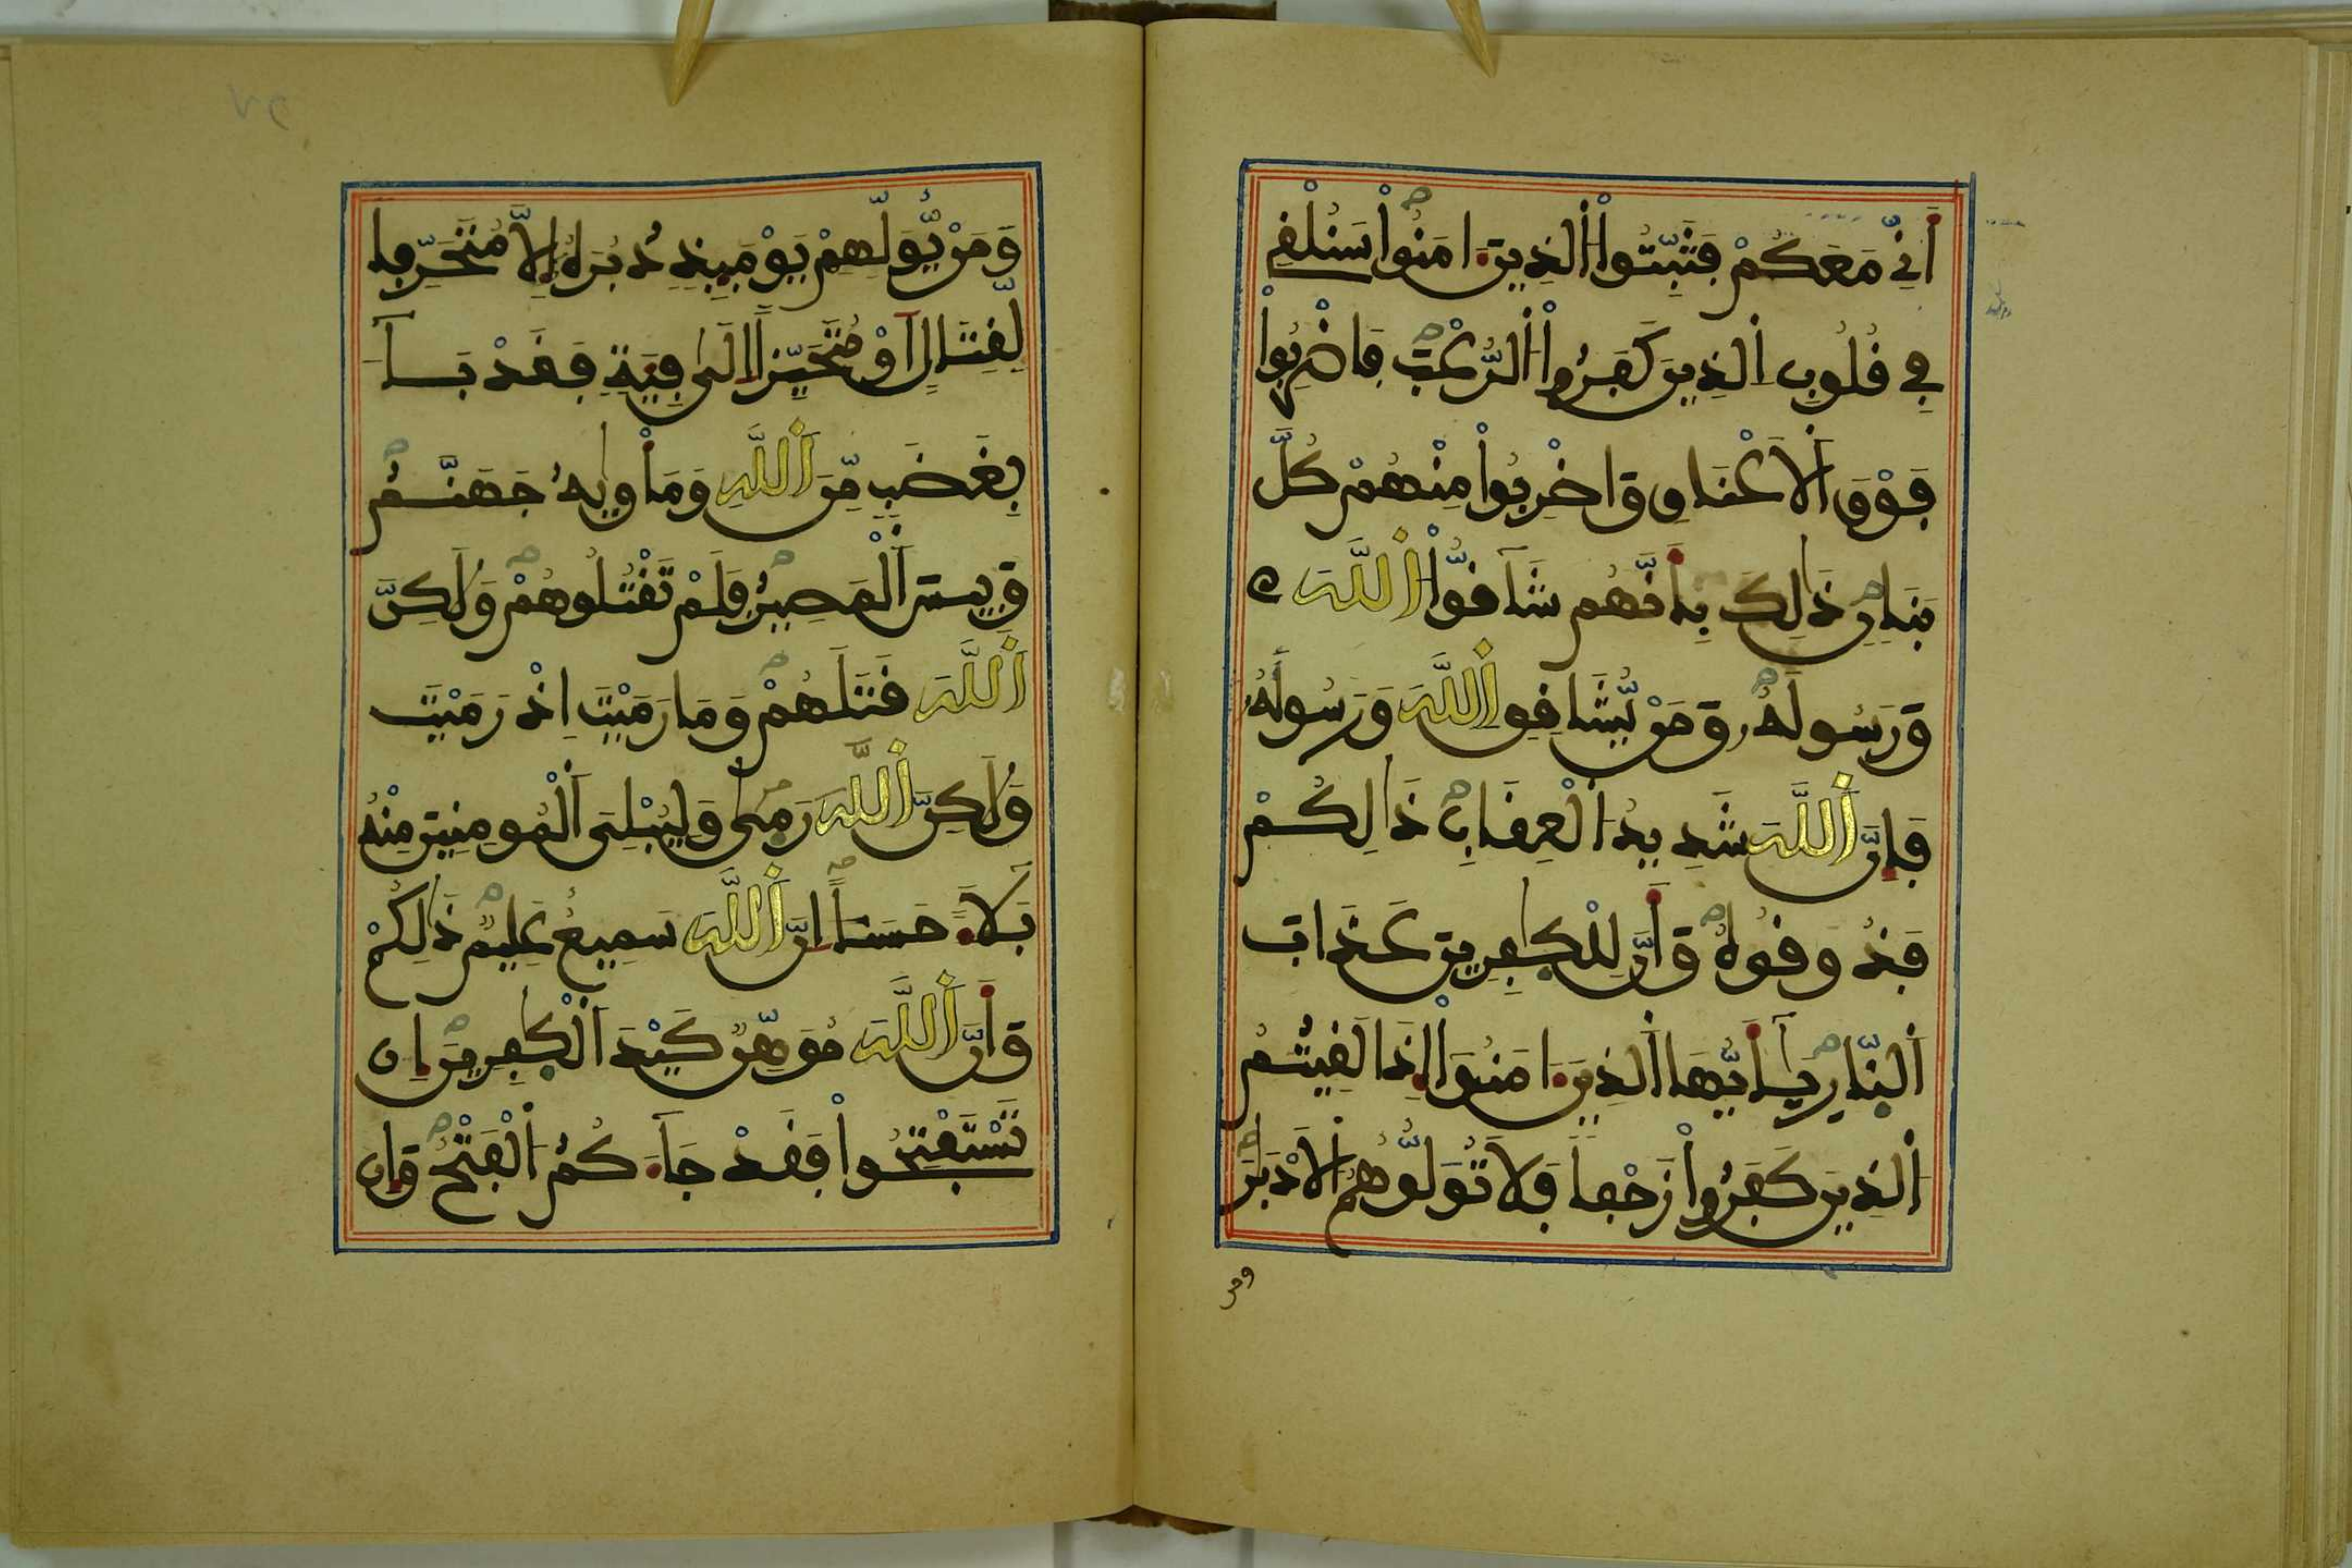 أَنِّے مَعَكُمْ فَثَبِّتُواْ اُ۬لذِينَ ءَامَنُواْ سَنُلْقِے
فِے قُلُوبِ اِ۬لذِينَ كَفَرُواْ اُ۬لرُّعْبَ فَاضْرِبُواْ
فَوْقَ اَ۬لَاعْنَاقِ وَاضْرِبُواْ مِنْهُمْ كُلَّ
بَنَانٖ ذَٰلِكَ بِأَنَّهُمْ شَآقُّواْ اُ۬للَّهَ
وَرَسُولَهُۥ وَمَنْ يُّشَاقِقِ اِ۬للَّهَ وَرَسُولَهُۥ
فَإِنَّ اَ۬للَّهَ شَدِيدُ اُ۬لْعِقَابِ ذَٰلِكُمْ
فَذُوقُوهُ وَأَنَّ لِلْكٰفِرِينَ عَذَابَ
اَ۬لنَّارِ يَٰٓأَيُّهَا اَ۬لذِينَ ءَامَنُوٓاْ إِذَا لَقِيتُمُ
اُ۬لذِينَ كَفَرُواْ زَحْفاً فَلَا تُوَلُّوهُمُ اُ۬لَادْبَٰرَ
ومن
وَمَنْ يُّوَلِّهِمْ يَوْمَئِذٖ دُبُرَهُۥٓ إِلَّا مُتَحَرِّفاٗ
لِّقِتَالٍ اَوْ مُتَحَيِّزاً اِلَىٰ فِئَةٖ فَقَدْ بَآءَ
بِغَضَبٖ مِّنَ اَ۬للَّهِ وَمَأْوٜيٰهُ جَهَنَّمُ
وَبِيسَ اَ۬لْمَصِيرُ فَلَمْ تَقْتُلُوهُمْ وَلَٰكِنَّ
اَ۬للَّهَ قَتَلَهُمْ وَمَا رَمَيْتَ إِذْ رَمَيْتَ
وَلَٰكِنَّ اَ۬للَّهَ رَمٜىٰ وَلِيُبْلِيَ اَ۬لْمُومِنِينَ مِنْهُ
بَلَآءً حَسَناً اِنَّ اَ۬للَّهَ سَمِيعٌ عَلِيمٌ ذَٰلِكُمْ
وَأَنَّ اَ۬للَّهَ مُوَهِّنٌ كَيْدَ اَ۬لْكٰفِرِينَ إِن
تَسْتَفْتِحُواْ فَقَدْ جَآءَكُمُ اُ۬لْفَتْحُ وَإِن